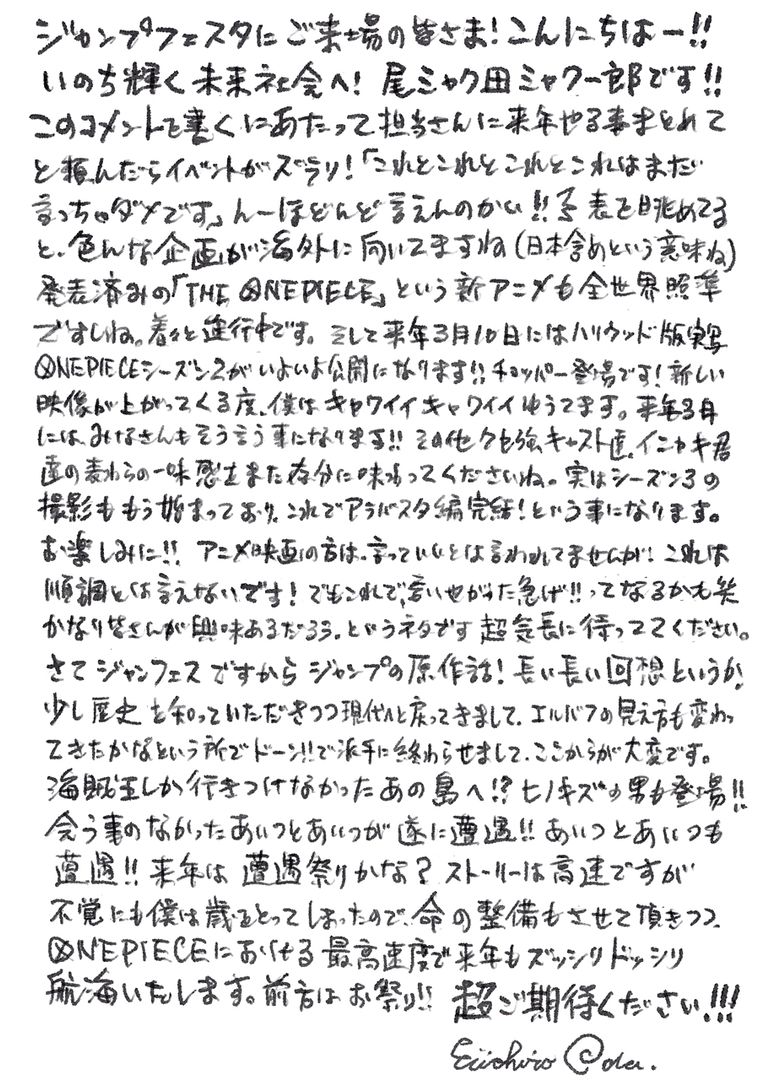 ジャンプフェスタにご来場の皆さま！こんにちはー!!
いのち輝く未来社会へ！ 尾ミャク田ミャクー郎です!!
このコメントを書くにあたって担当さんに来年やる事まとめて
と頼んだらイベントがズラリ！「これとこれとこれとこれはまだ
言っちゃダメです」んーほどんど言えんのかい!!予表を眺めてる
と、色んな企画が海外に向いてますね(日本含めという意味ね)
発表済みの「THE ONE PIECE」という新アニメも全世界照準
ですしね。着々と進行中です。そして来年3月10日にはハリウッド版実写
ONE PIECEシーズン2がいよいよ公開になります!!チョッパー登場です！新しい
映像が上がってくる度、僕はキャワイイキャワイイゆうてます。来年3月
には、みなさんもそう言う事になります!!その他クセ強キャスト達、イニャキ君
達の麦わらの一味感もまた存分に味わってくださいね。実はシーズン3の
撮影ももう始まっており、これでアラバスタ編完結！という事になります。
お楽しみに!!アニメ映画の方は、言っていいとは言われてませんが！これは
順調とは言えないです！でもこれで、言いやがった急げ!!ってなるかも笑
かなり皆さんが興味あるだろう、というネタです超気長に待っててください。
さてジャンフェスですからジャンプの原作話！長い長い回想というか、
少し歴史を知っていただきつつ現代へと戻ってきまして、エルバフの見え方も変わっ
てきたかなという所でドーン!!で派手に終わらせまして、ここからが大変です。
海賊王しか行きつけなかったあの島へ!?ヒノキズの男も登場!!
会う事のなかったあいつとあいつが遂に遭遇!!あいつとあいつも
遭遇!!来年は遭遇祭りかな？ストーリーは高速ですが
不覚にも僕は歳をとってしまったので、命の整備もさせて頂きつつ、
ONE PIECEにおける最高速度で来年もズッシリドッシリ
航海いたします。前方はお祭り!!超ご期待ください!!!
Eiichiro Oda.